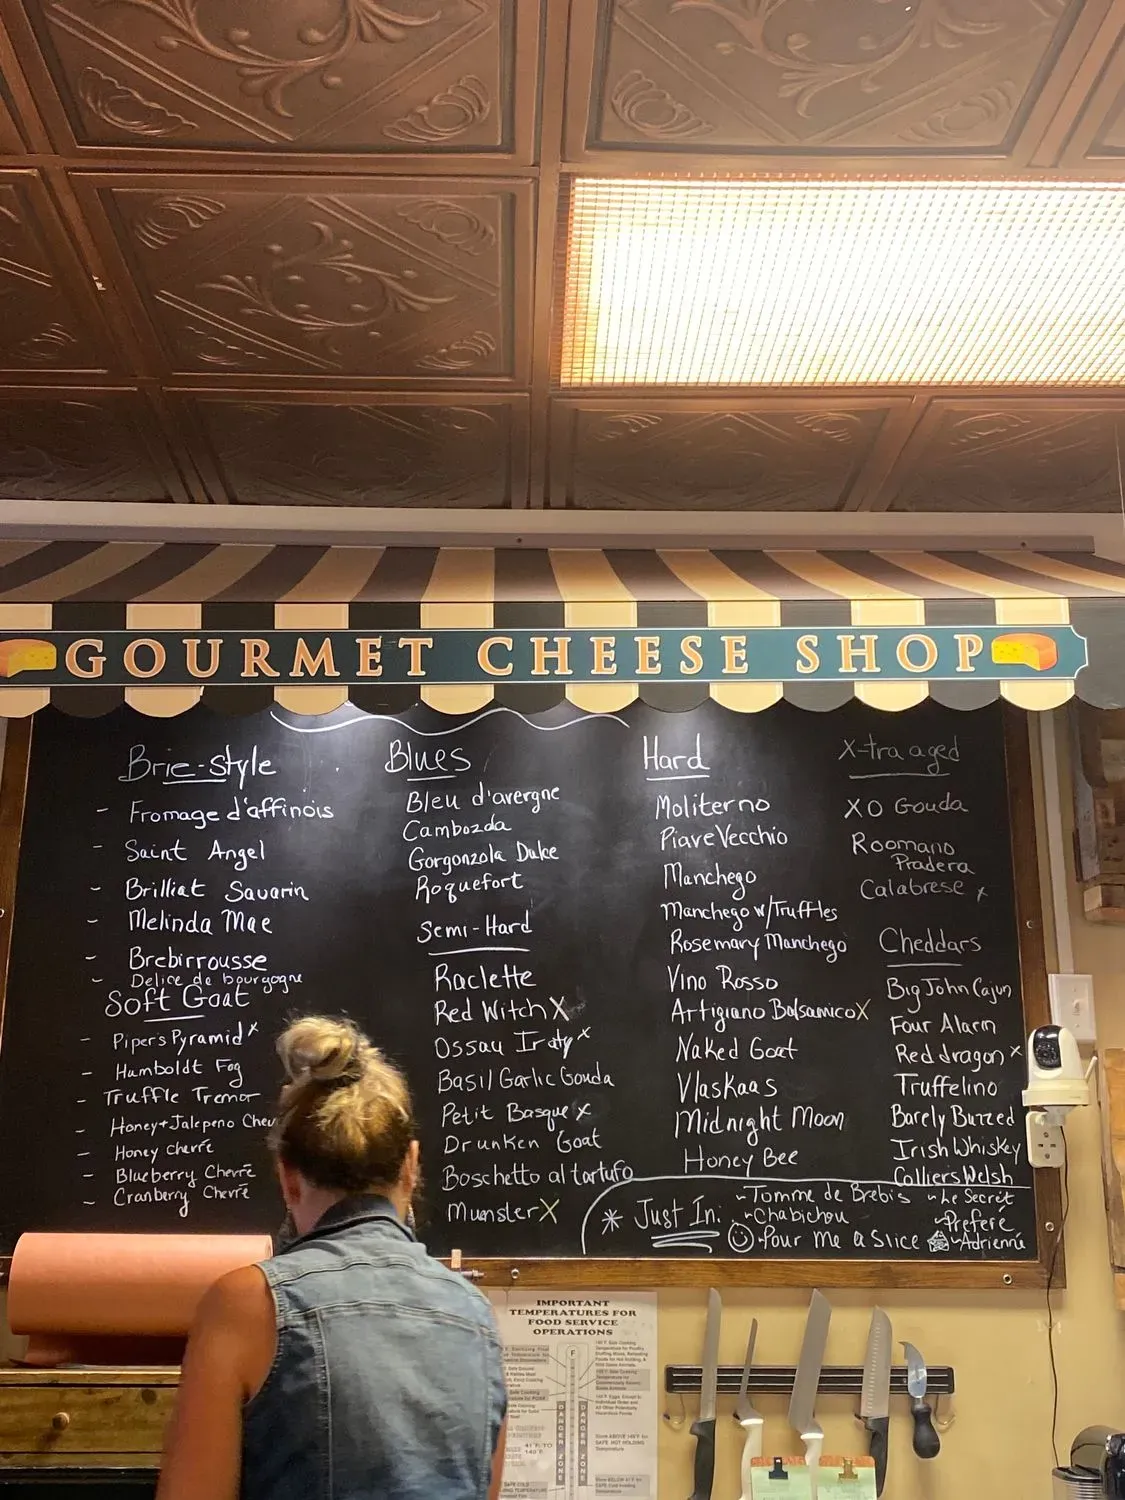 GOURMET CHEESE SHOP
Brie-style
- Fromage d'affinois
- Saint Angel
- Brilliat Savarin
- Melinda Mae
- Brebirrousse
- Delice de bourgogne
Soft Goat
- Pipers Pyramid x
- Humboldt Fog
- Truffle Tremor
- Honey+Jalepeno Chev
- Honey chevré
- Blueberry Chevré
- Cranberry Chevré
Blues
Bleu d'avergne
Cambozda
Gorgonzola Dulce
Roquefort
Semi-Hard
Raclette
Red Witch X
Ossau Iraty x
Basil Garlic Gouda
Petit Basque x
Drunken Goat
Boschetto al tartufo
Munster X
Hard
Moliterno
Piave Vecchio
Manchego
Manchego w/Truffles
Rosemary Manchego
Vino Rosso
Artigiano Balsamico X
Naked Goat
Vlaskaas
Midnight Moon
Honey Bee
X-tra aged
XO Gouda
Roomano
Pradera
Calabrese x
Cheddars
Big John Cajun
Four Alarm
Red dragon x
Truffelino
Barely Buzzed
Irish Whiskey
Colliers Welsh
* Just In:
~Tomme de Brebis
~Chabichou
Pour Me a Slice
~Le Secrét
~Preferé
~Adrienné
IMPORTANT
TEMPERATURES FOR
FOOD SERVICE
OPERATIONS
F
DANGER ZONE
DANGER ZONE
41°F. TO
140°F.